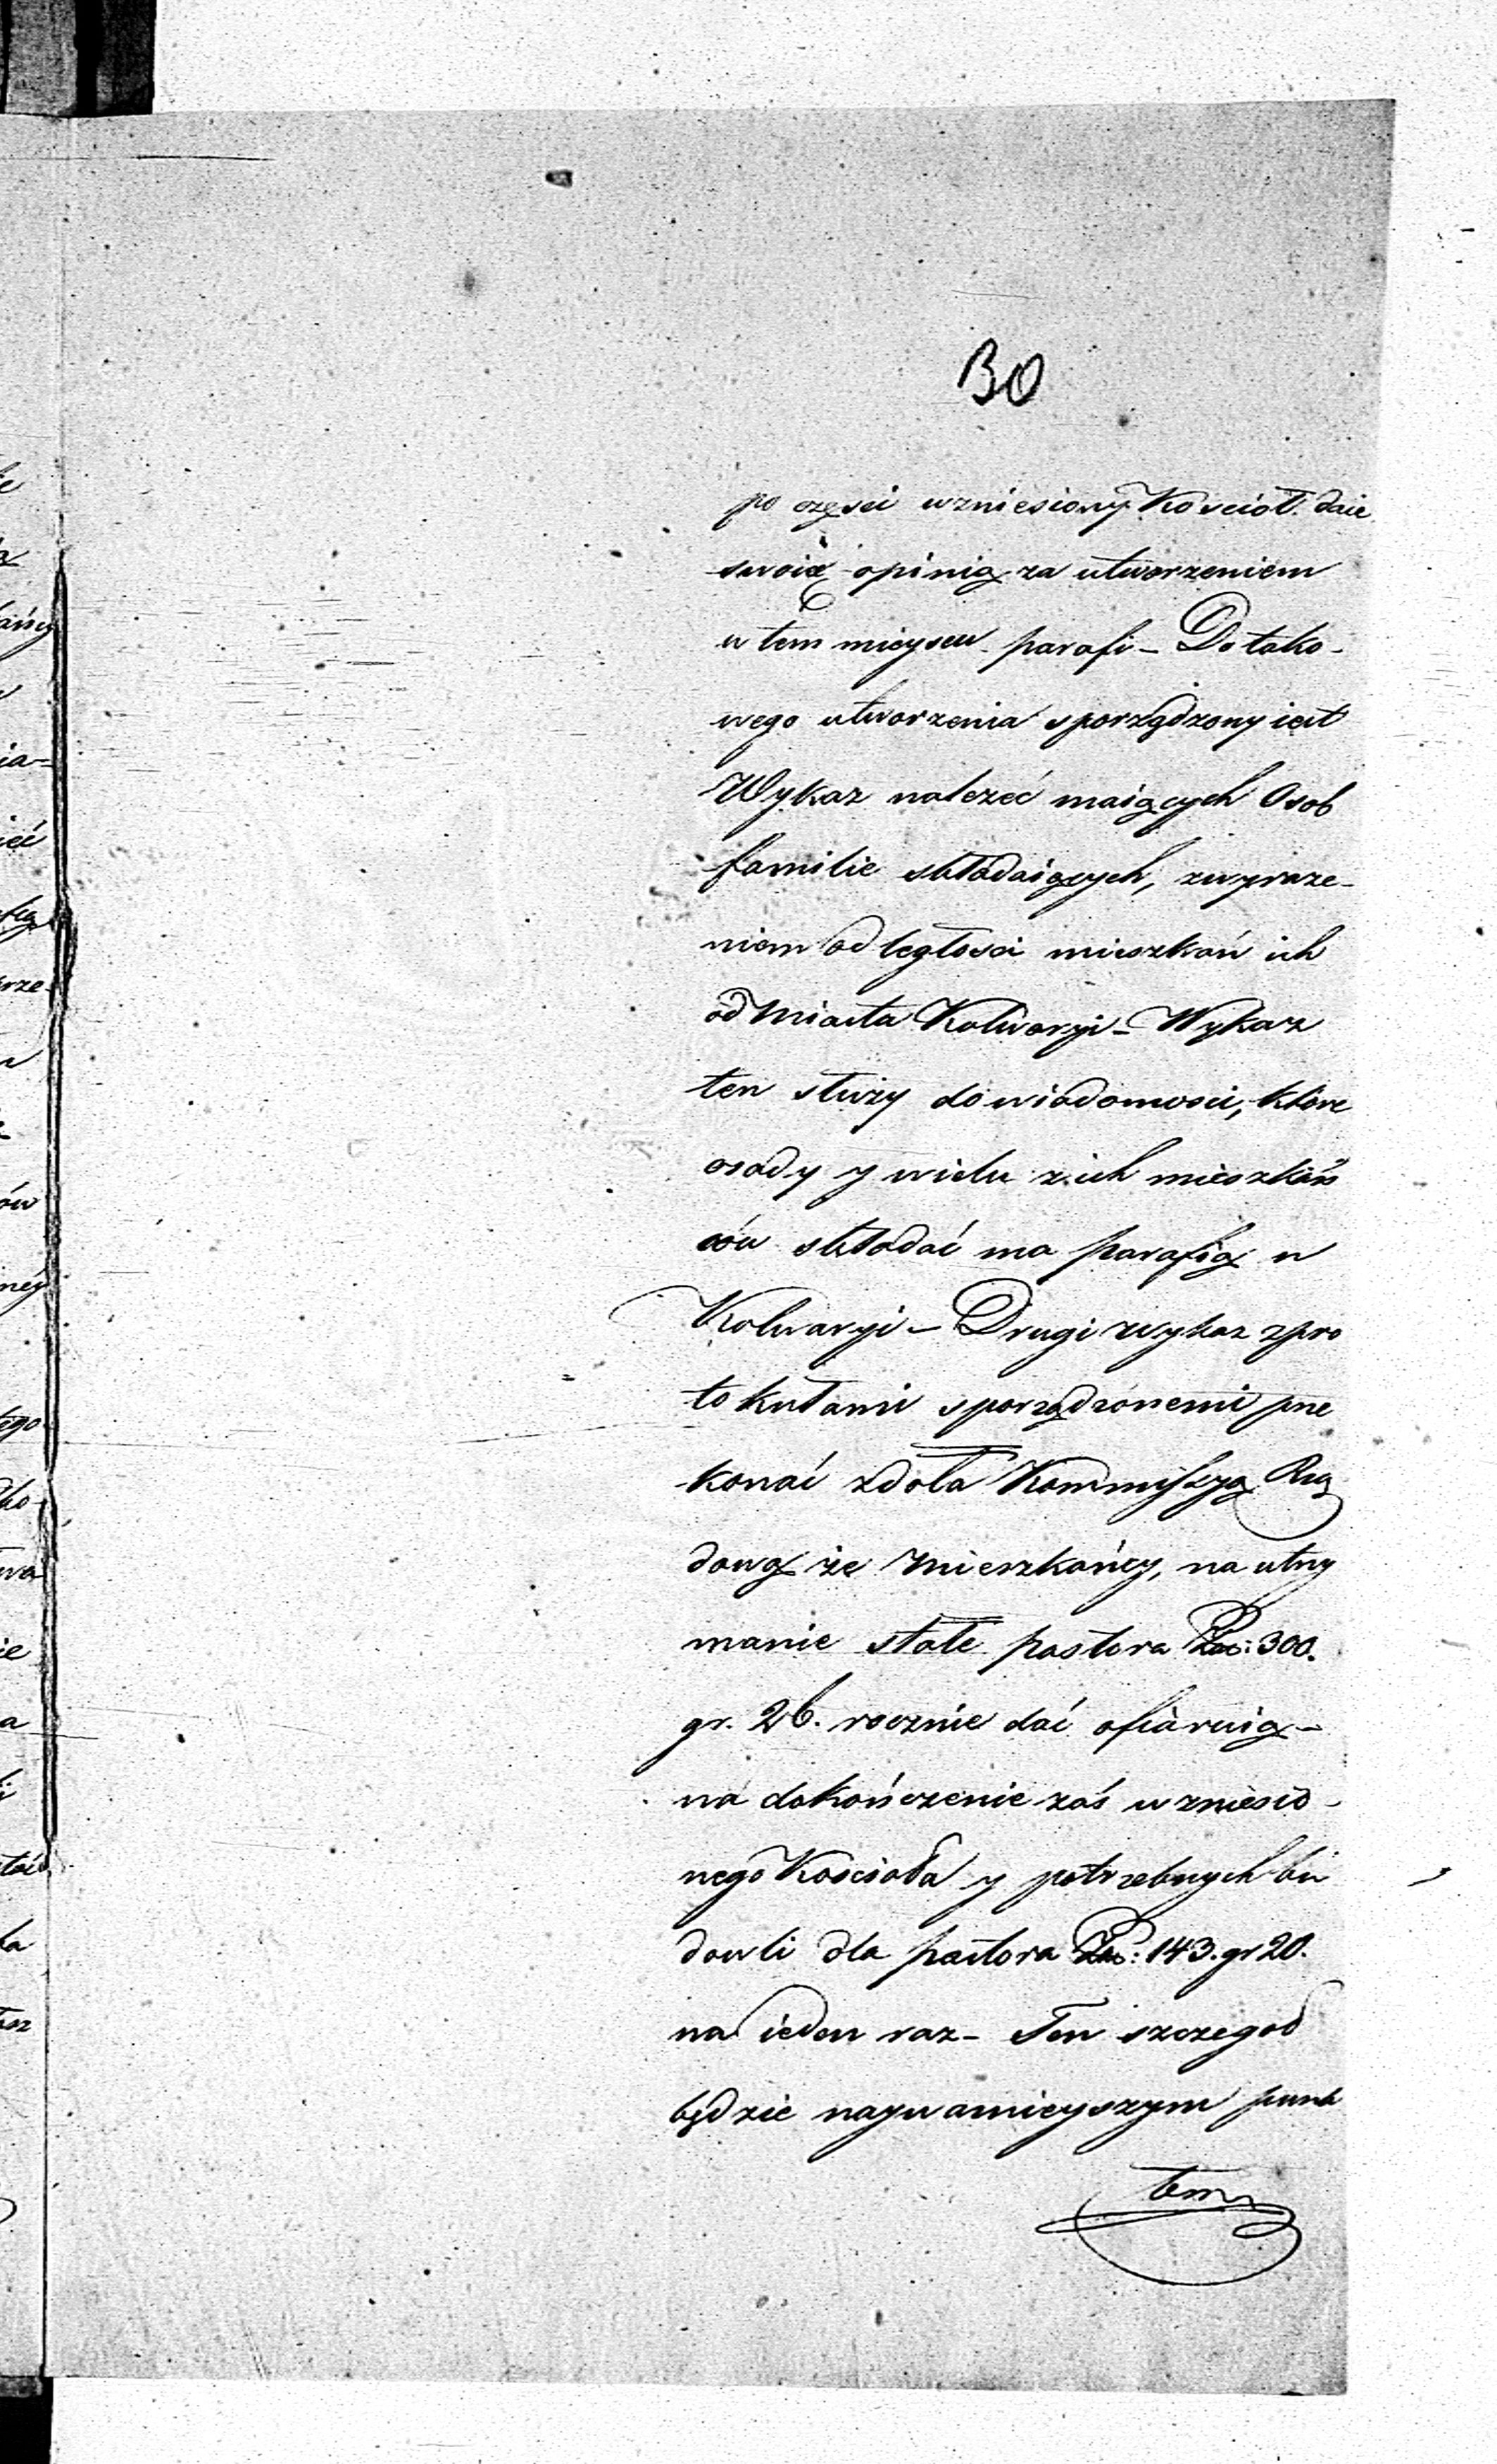 30
po części wzniesiony Kościoł. daie
swoią opinią za utworzeniem
w tem mieyscu parafi – Do tako-
wego utworzenia sporządzony iest
Wykaz należeć maiących Osob
familie składaiących, zwyraże-
niem odległości mieszkań ich
od Miasta Kalwaryi – Wykaz
ten służy do wiadomości, które
osady y wielu z ich mieszkań
ców składać ma parafią w
Kalwaryi – Drugi wykaz z pro
tokułami sporządzonemi prze
konać zdoła Kommissyą Rzą
dową że Mieszkańcy, na utrzy
manie stałe pastora Zło: 300.
gr. 26. rocznie dać ofiaruią –
na dokończenie zaś wzniesio-
nego Kościoła y potrzebnych bu
dowli dla pastora Zło: 143. gr 20.
na ieden raz – Ten szczegoł
będzie naywaznieyszym punk
tem